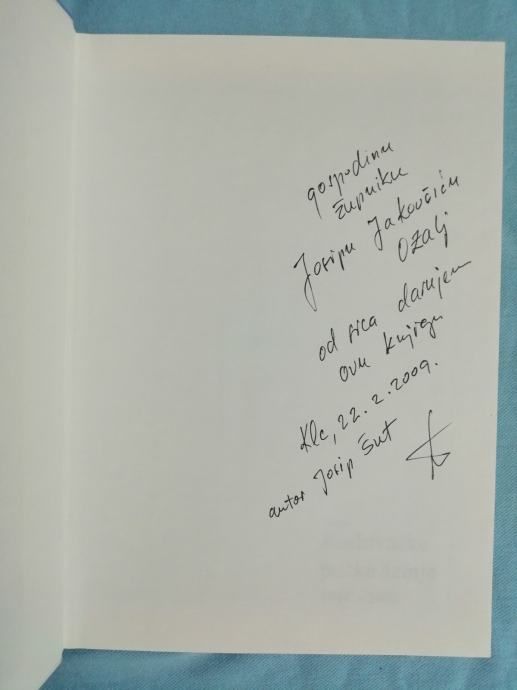 gospodinu
župniku
Josipu Jakovčiću
Ozalj
od srca darujem
ovu knjigu
Klc, 22. 2. 2009.
autor Josip Šut